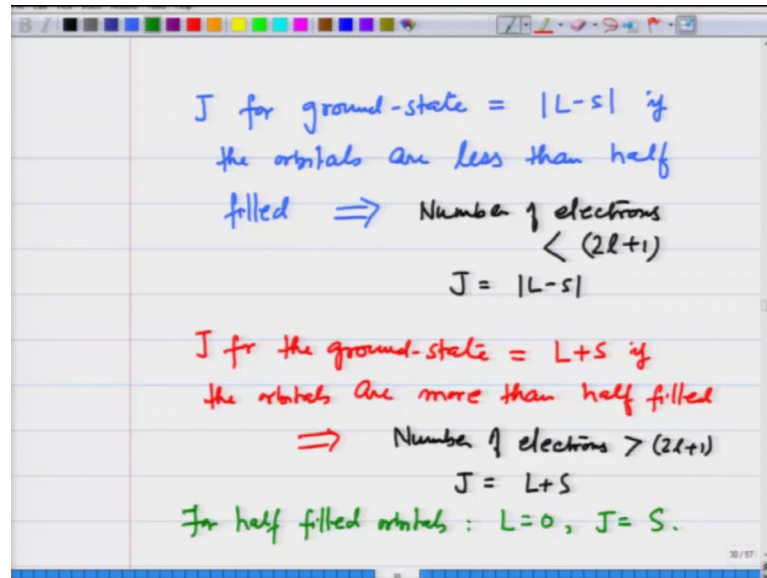 J for ground-state = |L-S| if
the orbitals are less than half
filled ⇒ Number of electrons
< (2l+1)
J = |L-S|
J fr the ground-state = L+S if
the orbitals are more than half filled
⇒ Number of electrons > (2l+1)
J = L+S
For half filled orbitals : L=0, J= S.
30/57